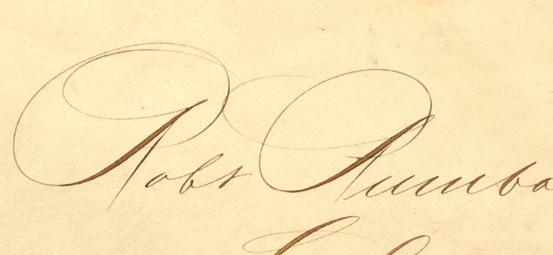 Robt Rumba